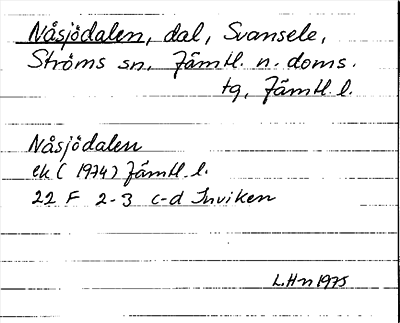 Nåsjödalen, dal, Svansele,
Ströms sn, Jämtl. n. doms.
tg, Jämtl. l.
Nåsjödalen
ek ( 1974) Jämtl. l.
22 F 2-3 c-d Inviken
L.Hn 1975